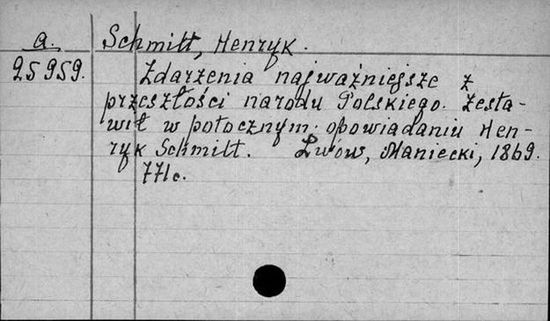 a. Schmitt, Henryk.
25959. Zdarzenia najważniejsze z
przeszłości narodu Polskiego. Zesta-
wił w potocznym opowiadaniu Hen-
ryk Schmitt. Lwów, Maniecki, 1869.
771c.